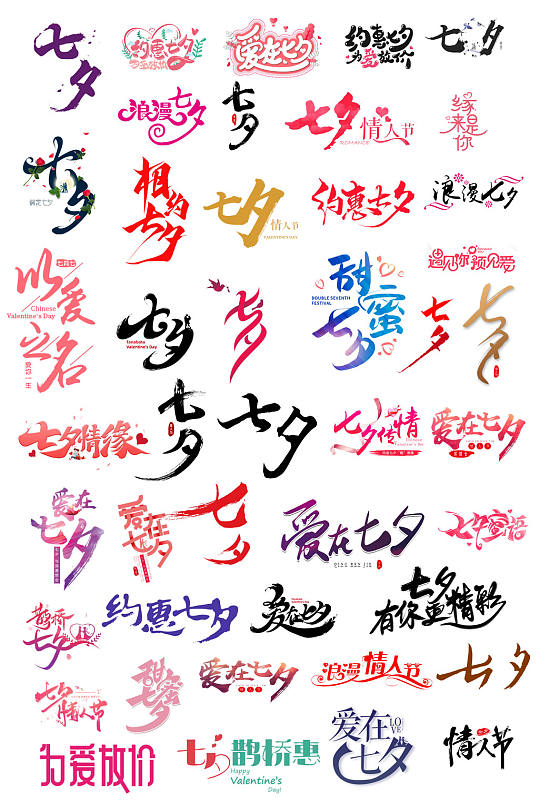 七夕
约惠七夕
为爱放价
爱在七夕
约惠七夕
为爱放价
七夕
浪漫七夕
七夕
七夕
情人节
缘来是你
七夕
情定七夕
相约七夕
七夕
情人节
VALENTINE'S DAY
约惠七夕
浪漫七夕
以爱之名
Chinese
Valentine's Day
爱你一生
七夕
Tanabata
Valentine's Day
七夕
甜蜜七夕
DOUBLE SEVENTH
FESTIVAL
七夕
遇见你 预见爱
七夕
七夕情缘
七夕
七夕
七夕传情
爱在七夕
爱在七夕
爱在七夕
七夕
爱在七夕
七夕蜜语
鹊桥七夕
约惠七夕
爱在七夕
七夕
有你更精彩
七夕情人节
甜蜜七夕
爱在七夕
浪漫情人节
七夕
为爱放价
七夕鹊桥惠
Happy
Valentine's
Day!
爱在七夕
LOVE
情人节